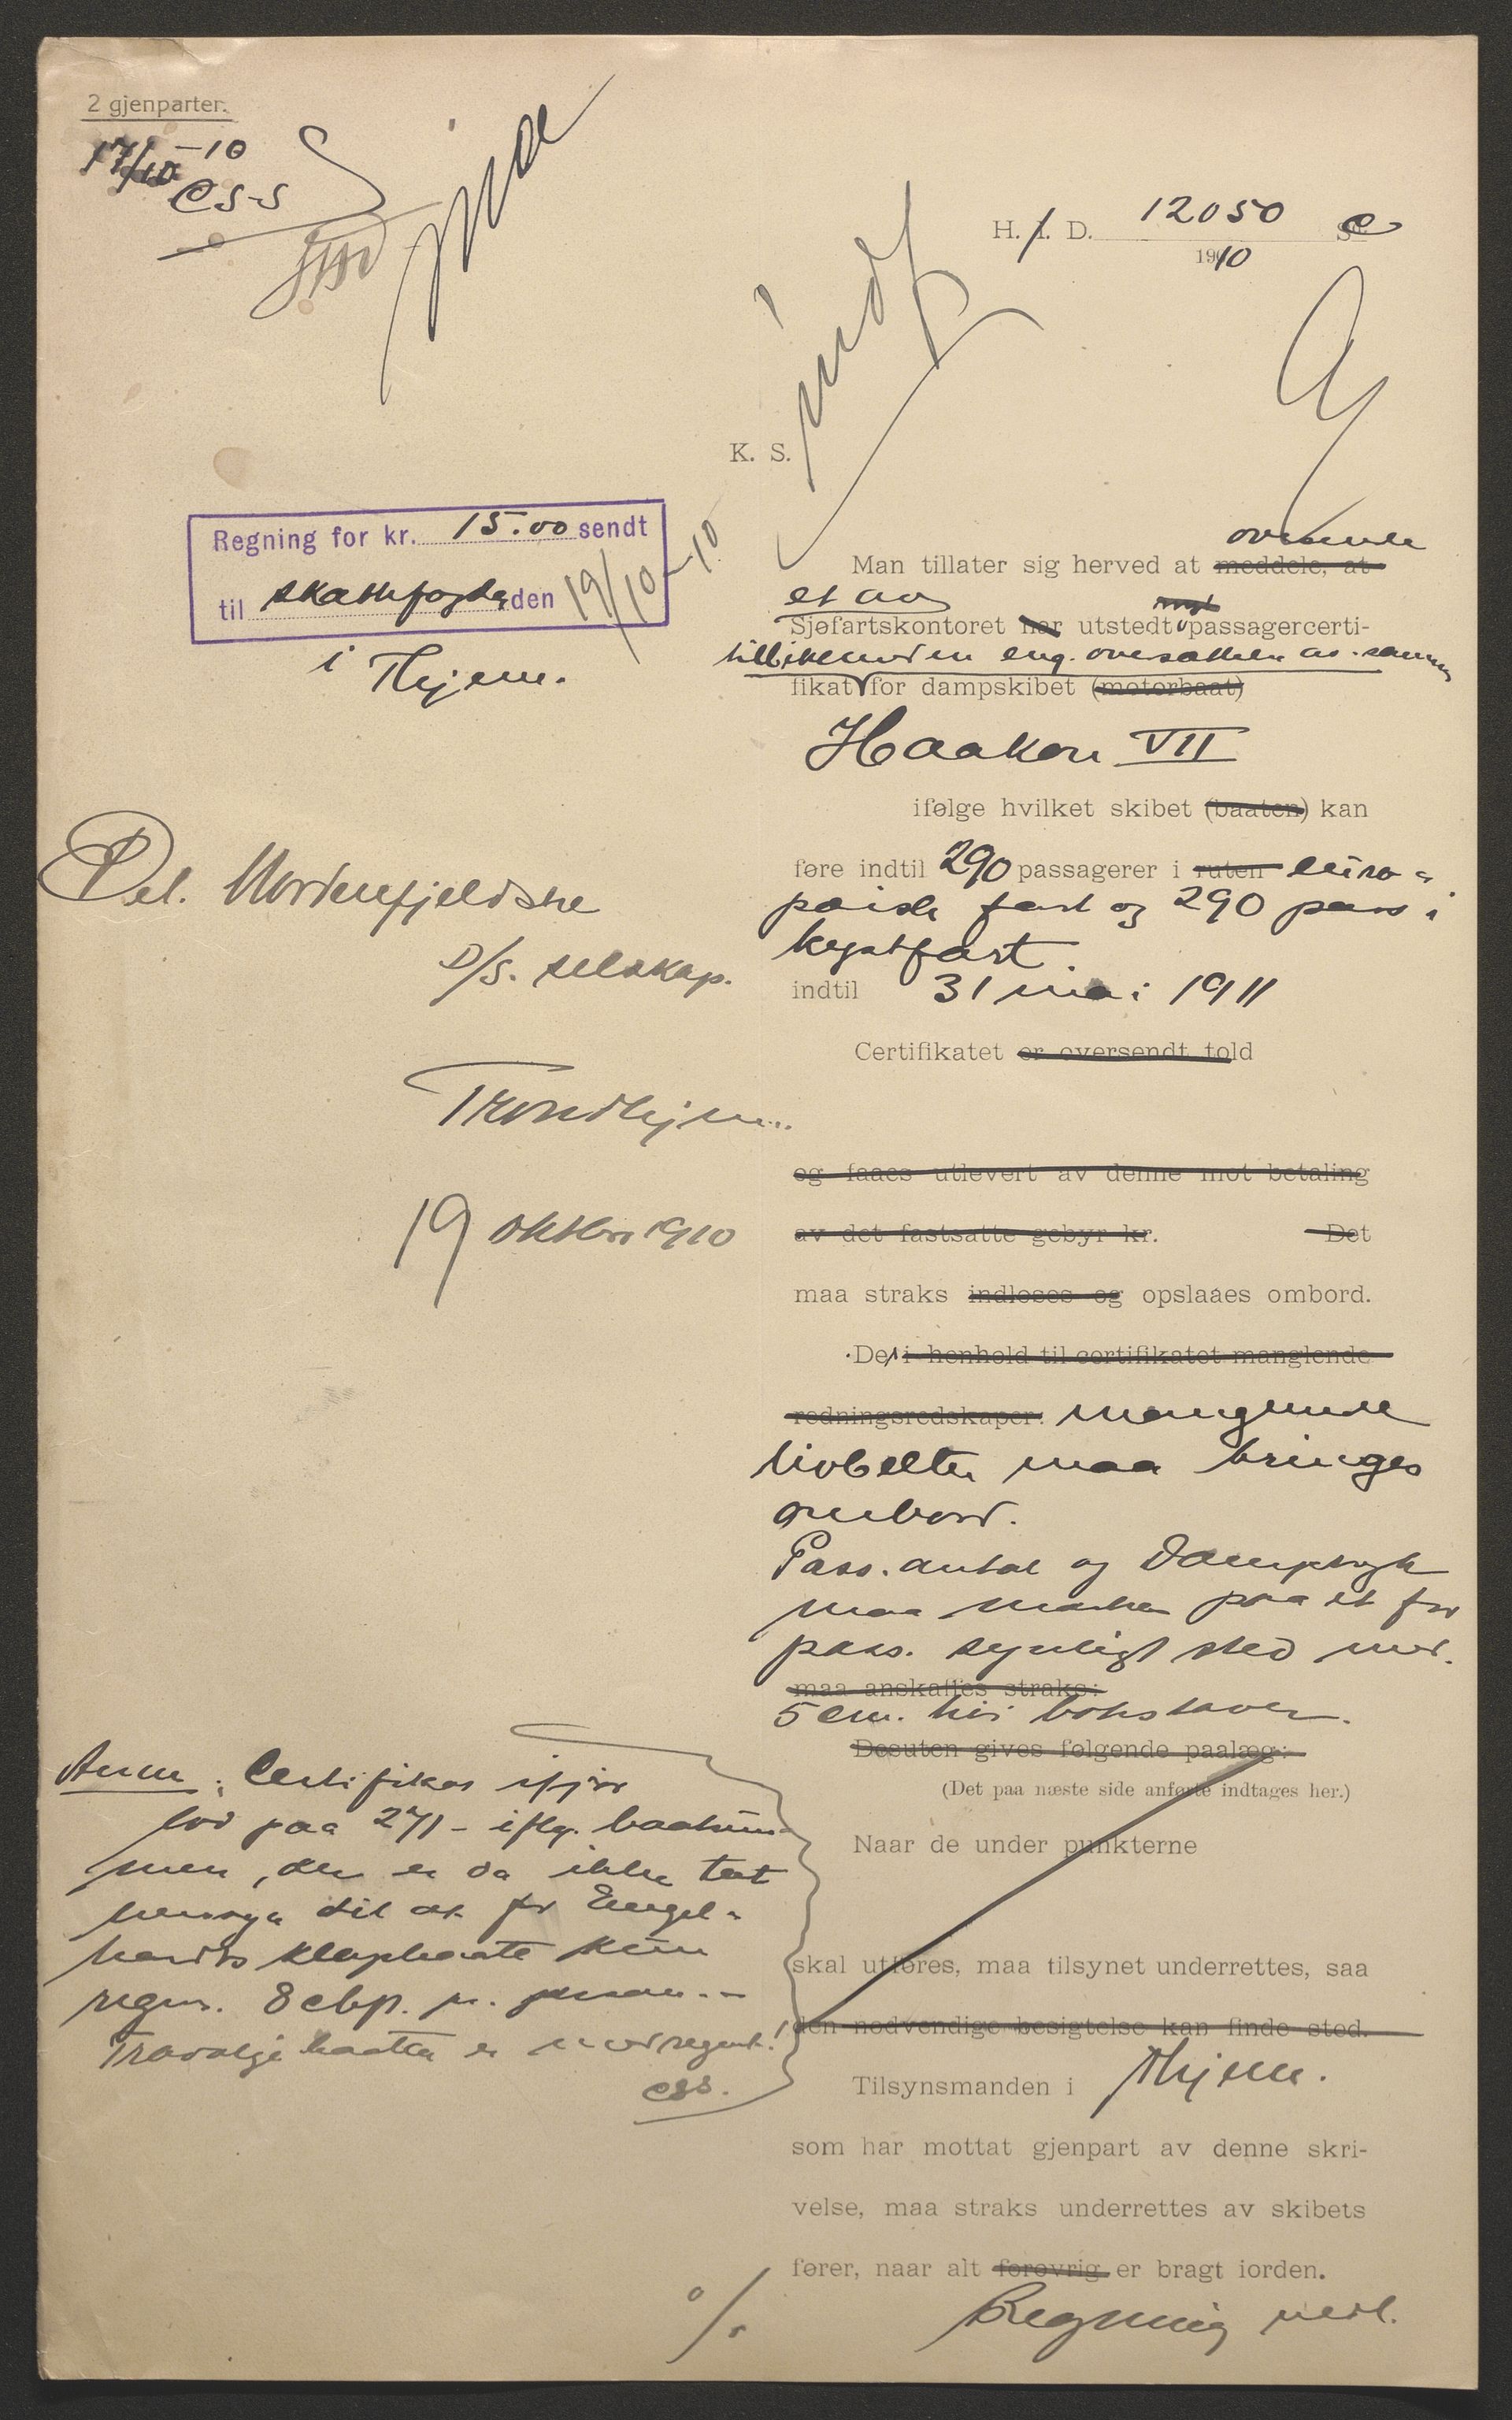 2 gjenparter.
17/10 -10
CSS
H. I. D. 12050 e
1910
K. S.
Regning for kr. 15.00 sendt
til skattefogden den 19/10-10
i Thjem.
oversende
Man tillater sig herved at meddele, at
et av
Sjøfartskontoret har utstedt nyt passagercerti-
tillikemed en eng. oversættelse av samme
fikat for dampskibet (motorbaat)
Haakon VII
ifølge hvilket skibet (baaten) kan
Det Nordenfjeldske
føre indtil 290 passagerer i ruten euro-
pæisk fart og 290 pass i
kystfart.
D/S. selskap.
indtil 31 mai 1911
Certifikatet er oversendt told
Trondhjem.
og faaes utlevert av denne mot betaling
19 oktbr 1910
av det fastsatte gebyr kr. Det
maa straks indløses og opslaaes ombord.
De i henhold til certifikatet manglende
redningsredskaper: manglende
livbelter maa bringes
ombord.
Pass. antal og damptryk
maa males paa et for
pass. synligt sted med
maa anskaffes straks:
5 cm. høi bokstaver.
Desuten gives følgende paalæg:
(Det paa næste side anførte indtages her.)
Naar de under punkterne
skal utføres, maa tilsynet underrettes, saa
den nødvendige besigtelse kan finde sted.
Anm: Certifikat ifjor
lød paa 271 - iflg. baatrum-
men, der er da ikke tat
hensyn til at for Engel-
hardts klapbaate kun
regnes 8 cbf. pr. person.-
baatter er
css.
Tilsynsmanden i Thjem.
som har mottat gjenpart av denne skri-
velse, maa straks underrettes av skibets
fører, naar alt forøvrig er bragt iorden.
Regning vedl.